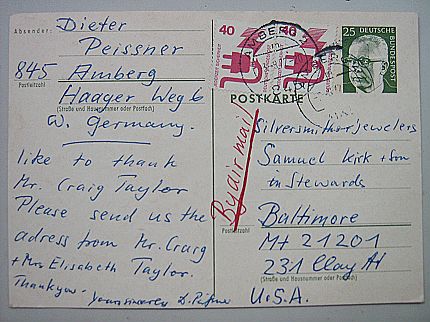 Absender:
Dieter
Peissner
845 Amberg
Postleitzahl
Haager Weg 6
(Straße und Hausnummer oder Postfach)
W. Germany.
like to thank
Mr. Craig Taylor
Please send us the
adress from Mr. Craig
+ Mrs Elisabeth Taylor.
Thankyou.
yours sincerely D. Peißner
40
40
25
DEUTSCHE
BUNDESPOST
AMBERG 2
POSTKARTE
By air mail
Silversmither jewelers
Samuel Kirk + Son
in Stewards
Baltimore
Postleitzahl
Md 21201
231 Clay St
(Straße und Hausnummer oder Postfach)
U.S.A.